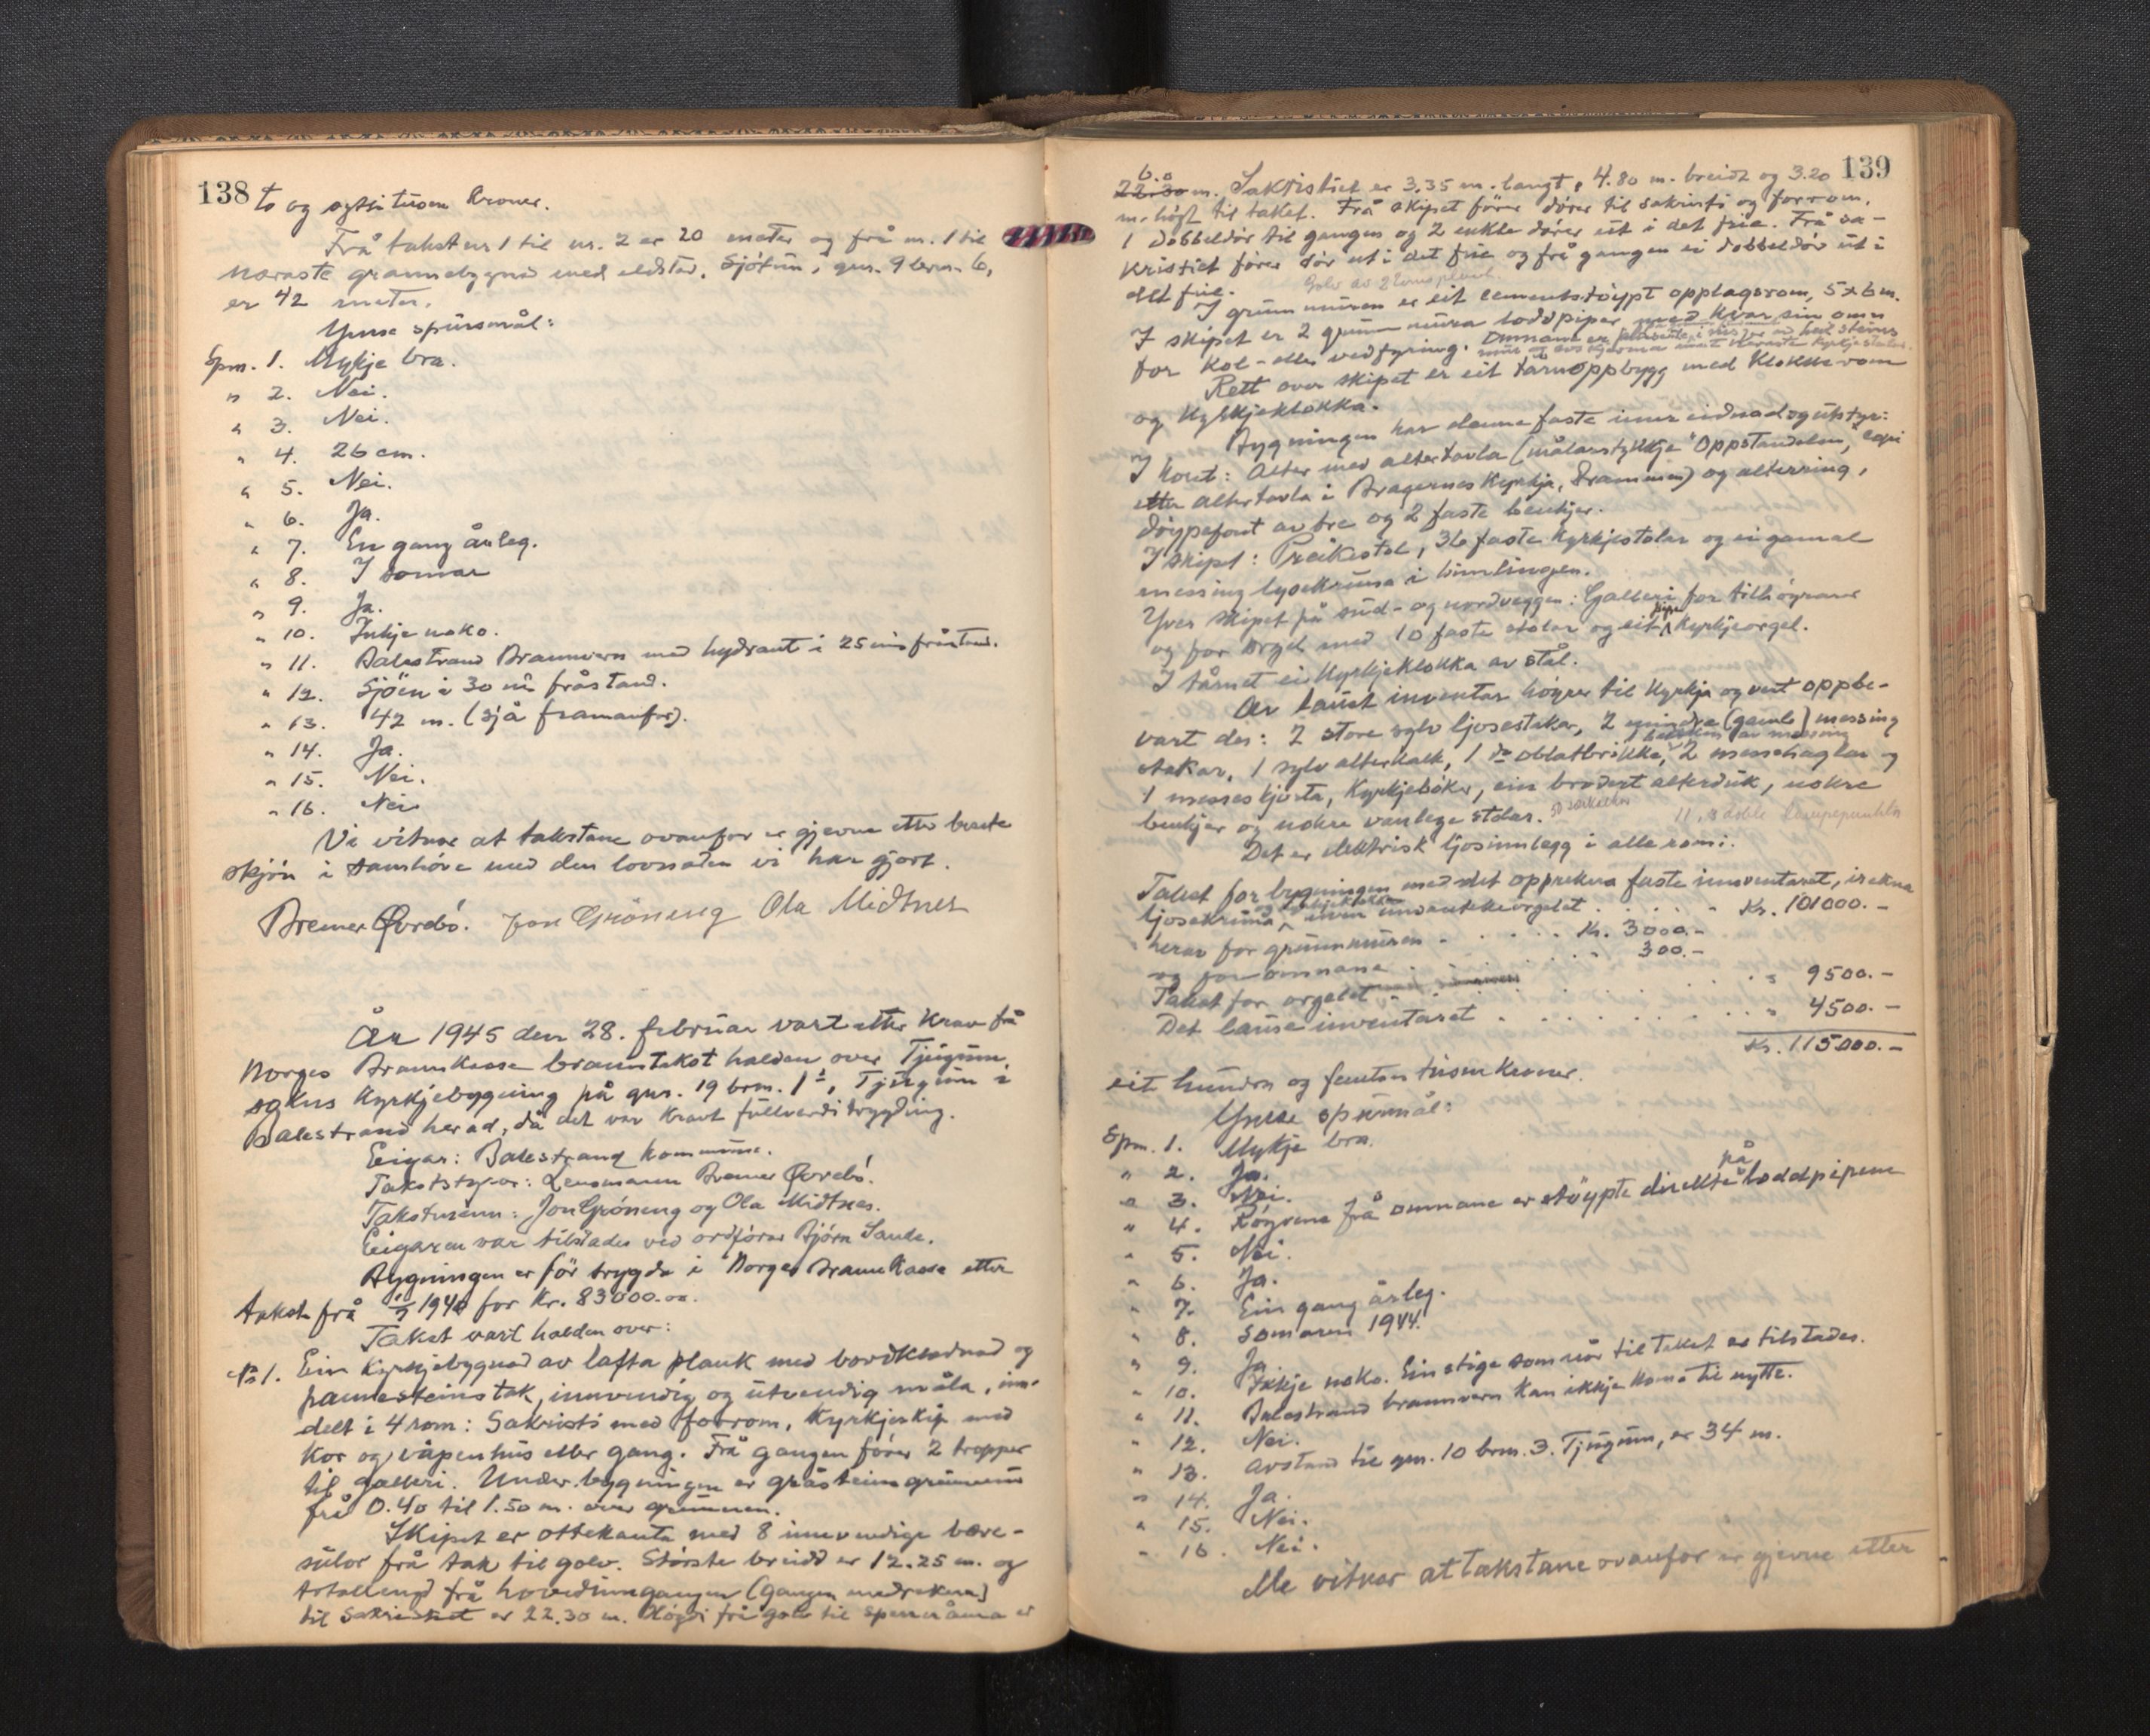 138
to og sytti tusen kroner.
Frå takstnr 1 til nr. 2 er 20 meter og frå nr. 1 til
næraste grannebygnad med eldstad, Sjötun, gnr. 9 brnr. 6,
er 42 meter.
Ymse spursmål:
Spm. 1. Mykje bra.
" 2. Nei.
" 3. Nei.
" 4. 26 cm.
" 5. Nei.
" 6. Ja.
" 7. Ein gang årleg.
" 8. I somar
" 9. Ja.
" 10. Inkje noko.
" 11. Balestrand Brannvern med hydrant i 25 m's fråstand.
" 12. Sjöen i 30 m's fråstand.
" 13. 42 m. (sjå framanfor).
" 14. Ja.
" 15. Nei.
" 16. Nei
Vi vitnar at takstane ovanfor er gjevne etter beste
skjön i samhöve med den lovnaden vi har gjort.
Bremer Øvrebö. Jon Gröneng Ola Midtnes
År 1945 den 28. februar vart etter krav frå
Norges Brannkasse branntakst halden over Tjugum
sokns kyrkjebygning på gnr. 19 brnr. 1, Tjugum i
Balestrand herad, då det var kravt fullverditrygding.
Eigar: Balestrand kommune.
Takststyrar: Lensmann Bremer Øvrebö.
Takstmenn: Jon Gröneng og Ola Midtnes.
Eigaren var tilstades ved ordförar Björn Sande.
Bygningen er för trygda i Norges Brannkasse etter
takst frå 1940 for kr. 83000.00.
Takst vart halden over:
No 1. Ein kyrkjebygnad av lafta plank med bordklednad og
pannesteinstak, innvendig og utvendig måla, inn-
delt i 4 rom: Sakristi med forrom, kyrkjeskip med
kor og våpenhus eller gang. Frå gangen förer 2 trapper
til galleri. Under bygningen er gråsteinsgrunnmur
frå 0.40 til 1.50 m. over grunnen.
Skipet er ottekanta med 8 innvendige bære-
sulor frå tak til golv. Störste breidd er 12.25 m. og
totallengd frå hovedinngangen (gangen medrekna)
til sakristiet er 22.30 m. Högd frå golv til sperreråma er
139
6.0
22.30 m. Sakristiet er 3.35 m. langt, 4.80 m. breidt og 3.20
m. högt til taket. Frå skipet förer dörer til sakristi og forrom,
1 dobbeldör til gangen og 2 enkle dörer ut i det frie. Frå sa-
kristiet förer dör ut i det frie og frå gangen ei dobbeldör ut i
det frie. Golv av 2 toms plank.
I grunnmuren er eit cementstöypt opplagsrom, 5x6 m.
I skipet er 2 grunnmura loddpiper med kvar sin omn
for kol- eller vedfyring. Omnane er
Rett over skipet er eit tårnoppbygg med klokkerom
og kyrkjeklokka.
Bygningen har denne faste innreidnad og utstyr:
I koret: Alter med altertavla (målarstykkje "Oppstandelsen," copi
etter altertavla i Bragernes kyrkje, Drammen) og alterring,
döypefont av tre og 2 faste benkjer.
I skipet: Preikestol, 36 faste kyrkjestolar og ei gamal
messing lysekruna i himlingen.
Yver skipet på sud- og nordveggen: Galleri for tilhöyrarar
og for orgel med 10 faste stolar og eit pipe kyrkjeorgel.
I tårnet ei kyrkjeklokka av stål.
Av laust inventar höyrer til kyrkja og vert oppbe-
vart der: 2 store sylv ljosestakar, 2 mindre (gamle) messing
stakar, 1 sylv alterkalk, 1 do oblatbrikke, 2 messehaglar og
1 messeskjorta, kyrkjebökar, ein brodert alterduk, nokre
benkjer og nokre vanlege stolar.
11, 3 doble lampepunkter
Det er elektrisk ljosinnlegg i alle romi.
Takst for bygningen med det opprekna faste innventaret, irekna
ljosekruna, men undantekke orgelet . . . . Kr. 101000.-
herav for grunnmuren . . . . . Kr. 3000.-
og for omnane . . . . . 300.-
Takst for orgelet . . . . . " 9500.-
Det lause inventaret . . . . . " 4500.-
Kr. 115000.-
eit hundra og femten tusen kroner.
Ymse spursmål:
Spm. 1. Mykje bra.
" 2. Ja.
" 3. Nei.
" 4. Röyrene frå omnane er stöypte direkte på loddpipene
" 5. Nei.
" 6. Ja.
" 7. Ein gang årleg.
" 8. Somaren 1944.
" 9. Ja.
" 10. Ikkje noko. Ein stige som når til taket er tilstades.
" 11. Balestrand brannvern kan ikkje koma til nytte.
" 12. Nei.
" 13. Avstand til gnr. 10 brnr. 3. Tjugum, er 34 m.
" 14. Ja.
" 15. Nei.
" 16. Nei.
Me vitnar at takstane ovanfor er gjevne etter